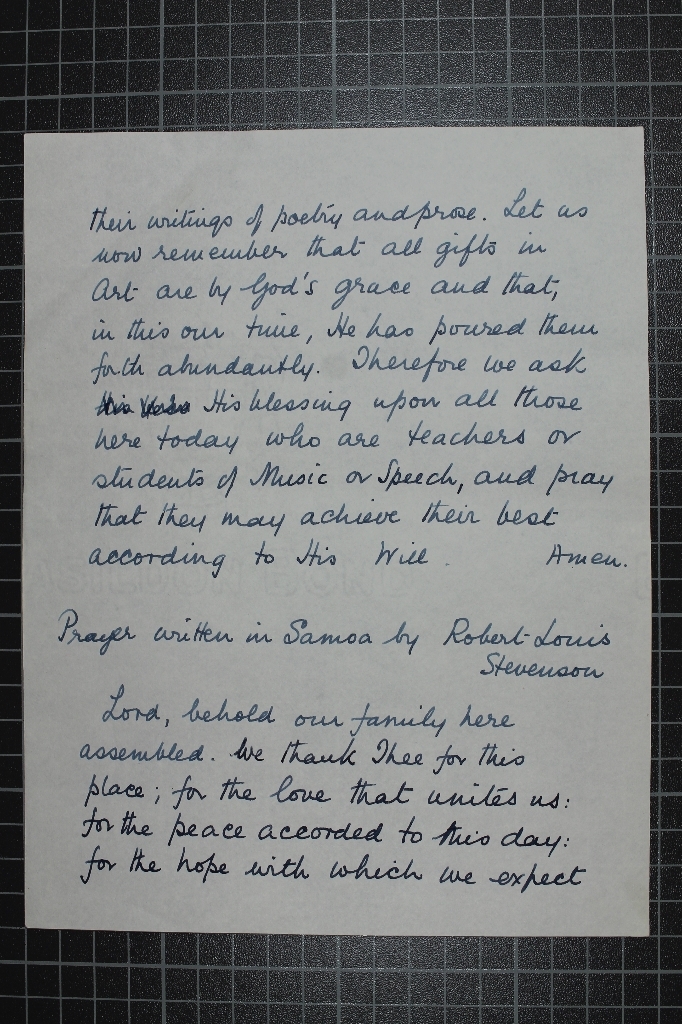 their writings of poetry and prose. Let us
now remember that all gifts in
Art are by God's grace and that,
in this our time, He has poured them
forth abundantly. Therefore we ask
His blessing upon all those
here today who are teachers or
students of Music or Speech, and pray
that they may achieve their best
according to His Will. Amen.
Prayer written in Samoa by Robert Louis
Stevenson
Lord, behold our family here
assembled. We thank Thee for this
place; for the love that unites us:
for the peace accorded to this day:
for the hope with which we expect